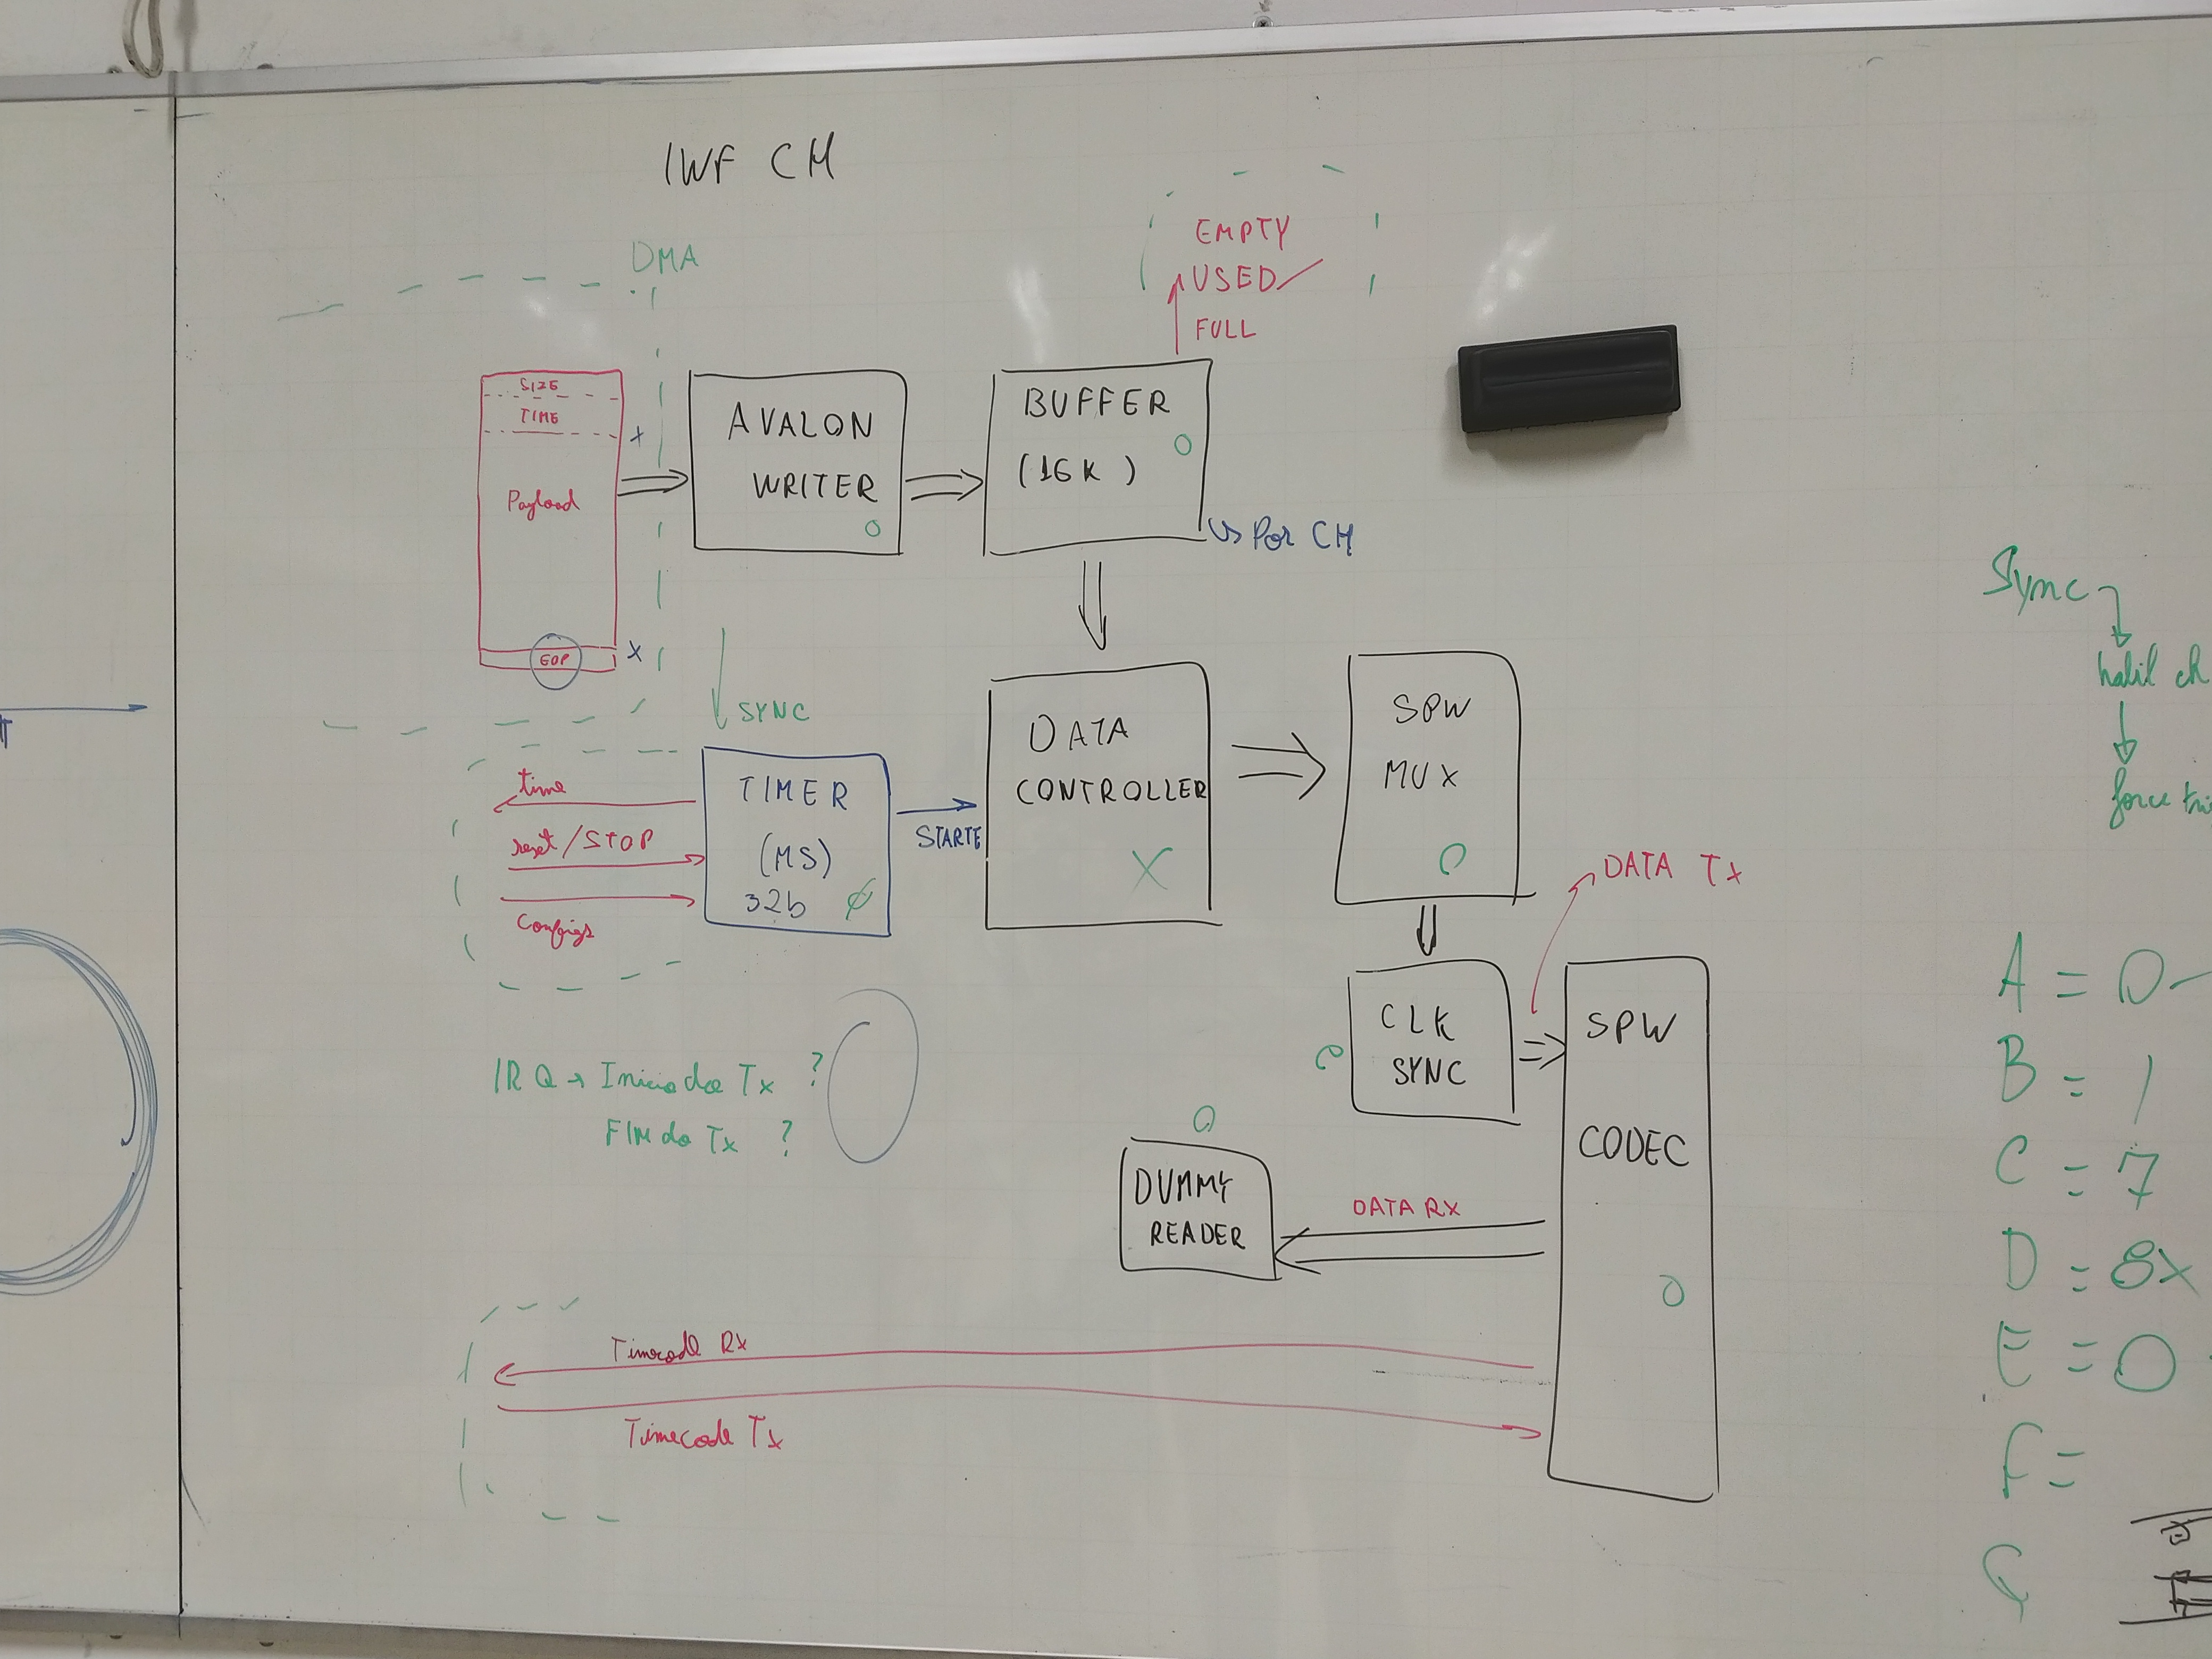 IWF CH
DMA
EMPTY
USED
FULL
SIZE
TIME
Payload
EOP
AVALON
WRITER
BUFFER
(16K)
Por CH
SYNC
time
reset/STOP
Configs
TIMER
(MS)
32b
STARTE
DATA
CONTROLLER
X
SPW
MUX
DATA Tx
CLK
SYNC
SPW
CODEC
IRQ → Inicio do Tx ?
FIM do Tx ?
DUMMY
READER
DATA RX
Timecode Rx
Timecode Tx
Sync
habil ch
force
A = 0
B = 1
C = 7
D = 8x
E = 0
F =